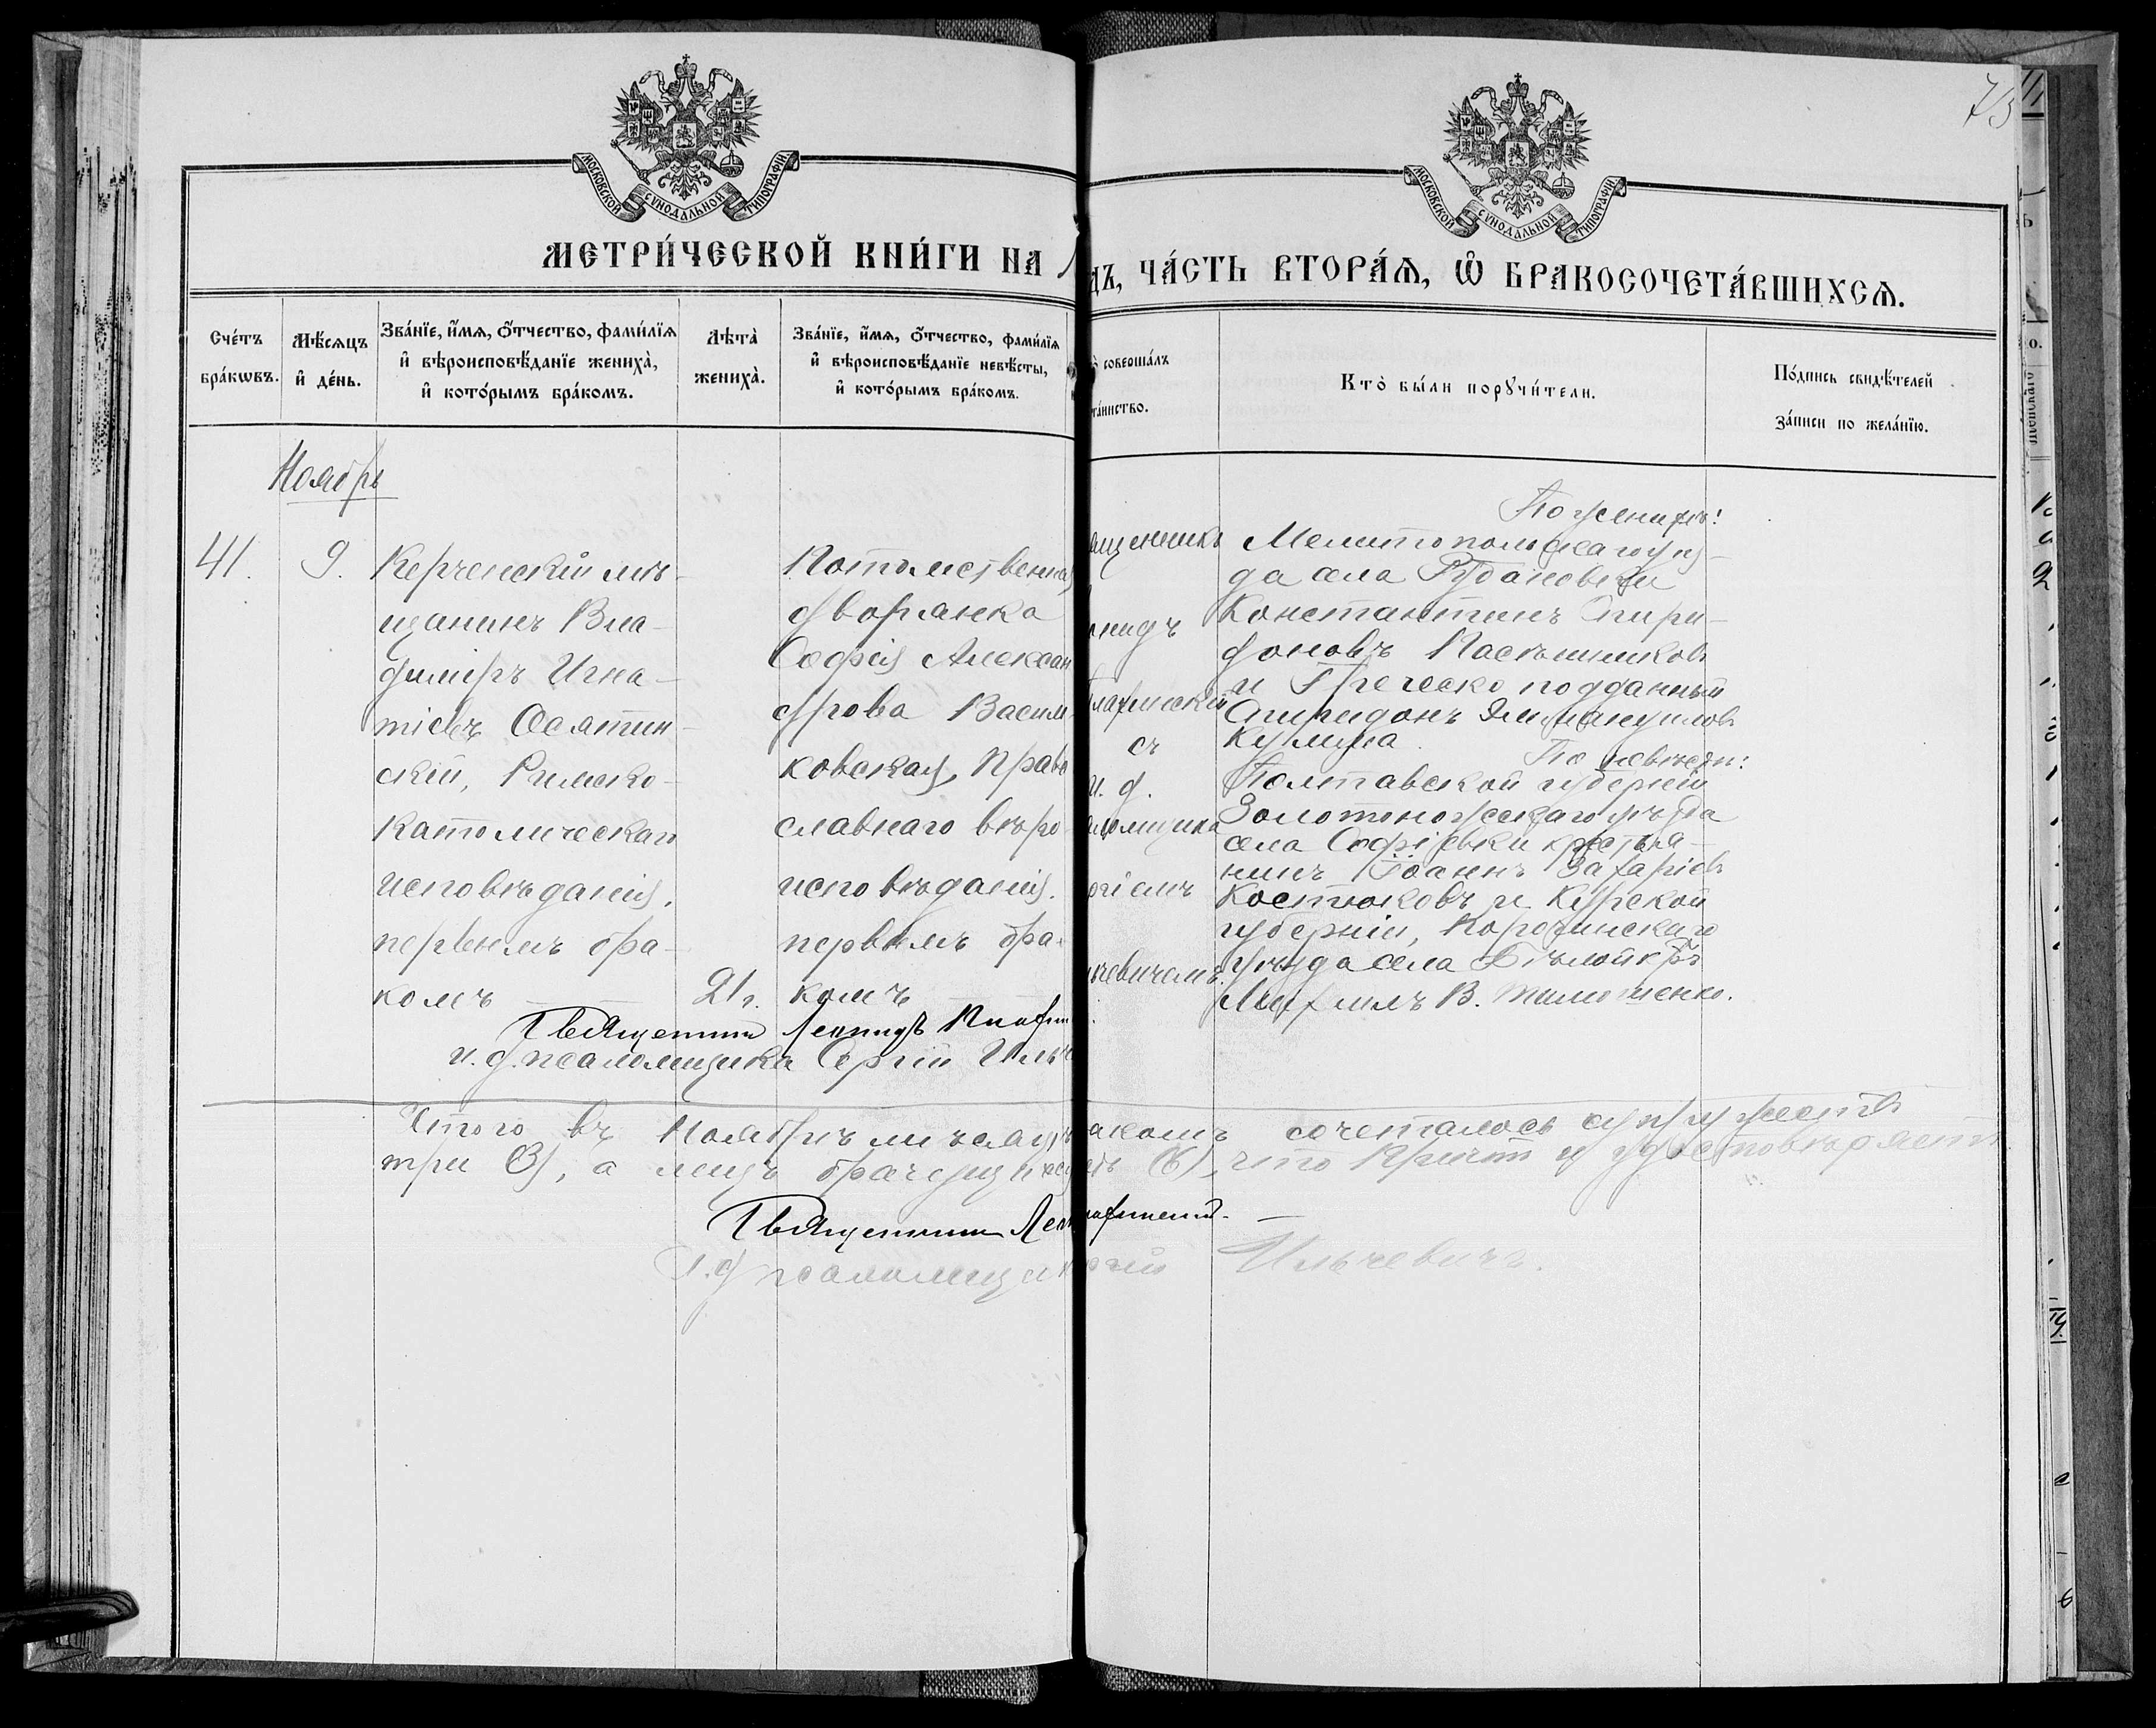 73
МОСКОВСКОЙ СУНОДАЛЬНОЙ ТИПОГРАФІИ.
МОСКОВСКОЙ СУНОДАЛЬНОЙ ТИПОГРАФІИ.
МЕТРИ́ЧЕСКОЙ КНИ́ГИ НА 1
дъ, ЧА́СТЬ ВТОРА́Ѧ, Ѽ БРАКОСОЧЕТА́ВШИХСѦ.
Сче́тъ
бра́кѡвъ.
Мѣ́сѧцъ
и҆ де́нь.
Зва́нїе, и҆́мѧ, ѻ҆́тчество, фами́лїѧ
и҆ вѣроисповѣ́данїе жениха̀,
и҆ кото́рымъ бра́комъ.
Лѣта̀
жениха̀.
Зва́нїе, и҆́мѧ, ѻ҆́тчество, фами́лїѧ
и҆ вѣроисповѣ́данїе невѣ́сты,
и҆ кото́рымъ бра́комъ.
о̀ соверша́лъ
та́инство.
Кто̀ бы́ли порꙋчи́тели.
По́дпись свидѣ́телей
за́писи по жела́нїю.
Ноябрь
41.
9.
Керченскій мѣ-
щанинъ Вла-
диміръ Игна-
тіевъ Осятин-
скій, Римско-
католическаго
исповѣданія,
первымъ бра-
комъ
21 г.
Потомственная
дворянка
Софія Алексан
дрова Васил
ковская, Право
славнаго вѣро
исповѣданія.
первымъ бра-
комъ
ященникъ
онидъ
съ
и. д.
аломщика
ргіемъ
ьчевичемъ.
По женихѣ:
Мелитопольскаго уѣз-
да села Рубановки
Константинъ Спири-
доновъ Пасѣшниковъ
и Греческо подданный
Спиридонъ Эммануиловъ
По невѣстѣ:
Полтавской губерніи
Золотоношскаго уѣзда
села Софіевки крестья-
нинъ Іоаннъ Захаріевъ
Костюковъ и Курской
губерніи, Корочинскаго
уѣзда села
Михаилъ В. Тимошенко.
Священникъ Леонидъ
и. д. псаломщика Сергій Ильч
Итого въ Ноябрѣ мѣсяцѣ
акомъ сочеталось супружествъ
три (3), а лицъ брачущихся
сть (6), что Причтъ и удостовѣряетъ.
Священникъ Леон
И. д. псаломщик
ргій Ильчевичъ.